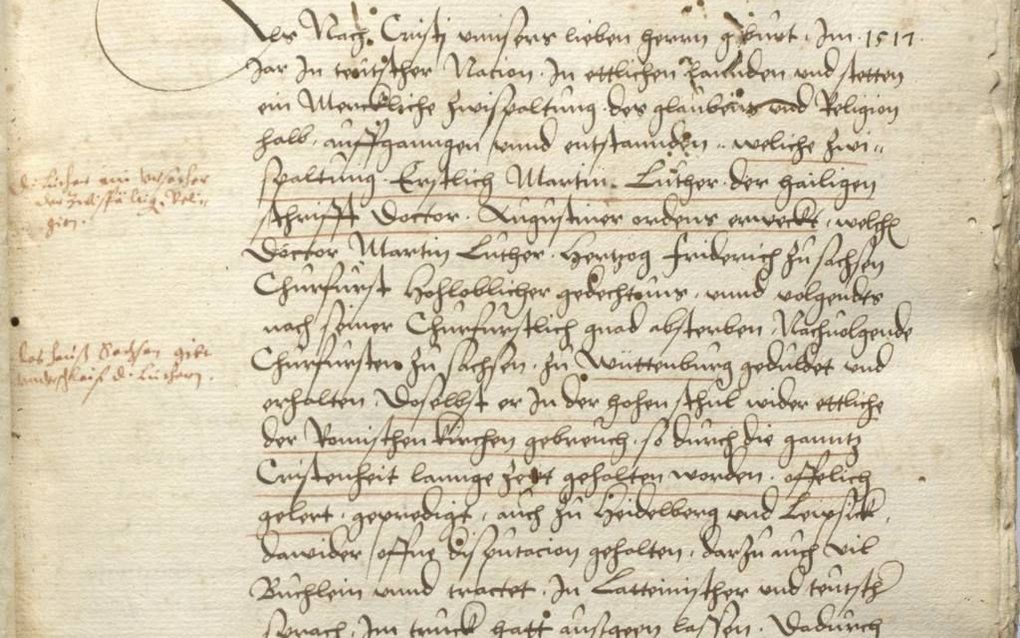 Als Nach Cristj unnsers lieben herrn gepurt. Im. 1517.
Jar In teutscher Nacion. In ettlichen Lannden und stetten
ein Merckliche zwispaltung des glaubens und Religion
halb. auffganngen unnd entstannden. weliche zwi=
spaltung Erstlich Martin Luther. der hailigen
schrifft Doctor. Augustiner ordens erweckt, welchen
Doctor Martin Luther. Hertzog Friderich zu sachsen
Churfurst Hochloblicher gedechtnus, unnd volgendts
nach seiner Churfurstlich gnad absterben, Nachvolgende
Churfursten zu sachsen. zu Wüttenburg geduldet und
erhalten. Doselbst er In der hohen schul wider ettliche
der Romischen kirchen gebreuch, so durch die ganntz
Cristenheit lannge zeyt gehalten worden. offelich
gelert. gepredigt, auch zu Heidelberg und Leypsick,
dawider offne disputacion gehalten, darzu auch vil
Büchlein unnd tractet. In Latteinischer und teutscher
sprach, Im truck hatt ausgeen lassen. Dadurch
d. Luther ein ursacher
der zwispaltig. Reli=
gion.
das hauß Sachsen gibt
d. Luthern.